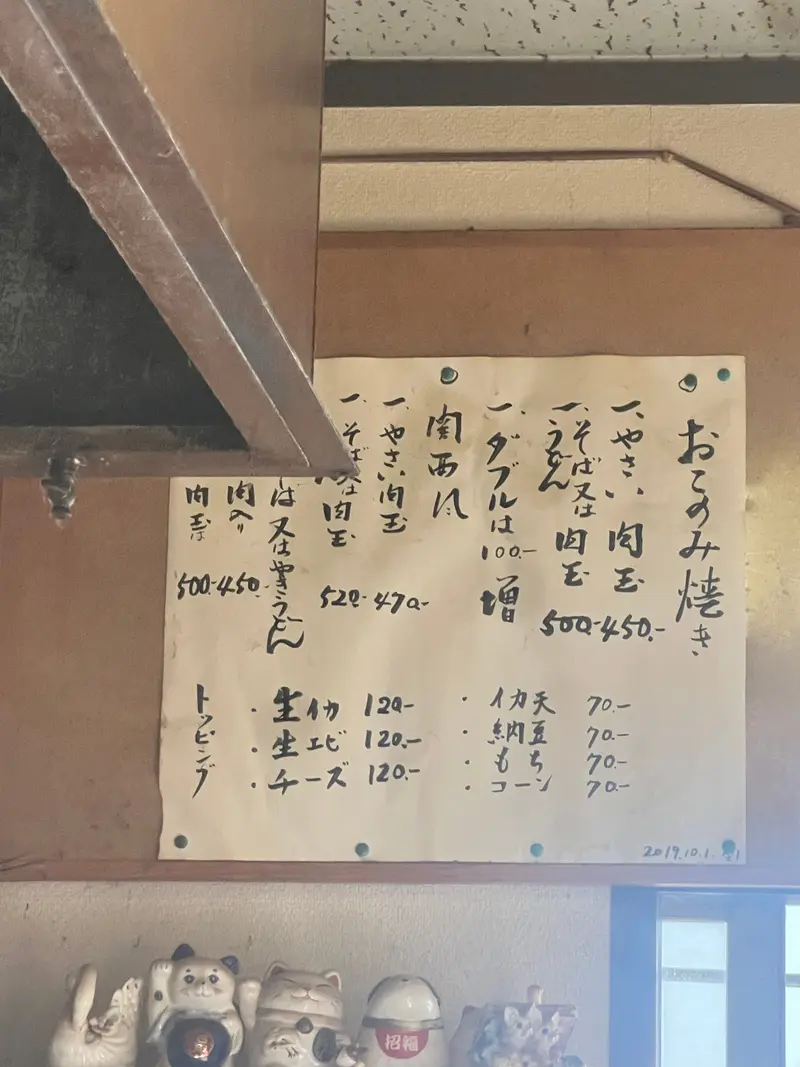 おこのみ焼き
一、やさい 肉玉 450.-
一、そば又は
うどん 肉玉 500.-
一、ダブルは 100.- 増
関西風
一、やさい 肉玉 470.-
一、そば又は 肉玉 520.-
ば 又は やきうどん
肉入り 450.
肉玉は 500.-
トッピング
・生イカ 120.-
・生エビ 120.-
・チーズ 120.-
・イカ天 70.-
・納豆 70.-
・もち 70.-
・コーン 70.-
2019.10.1.
招福